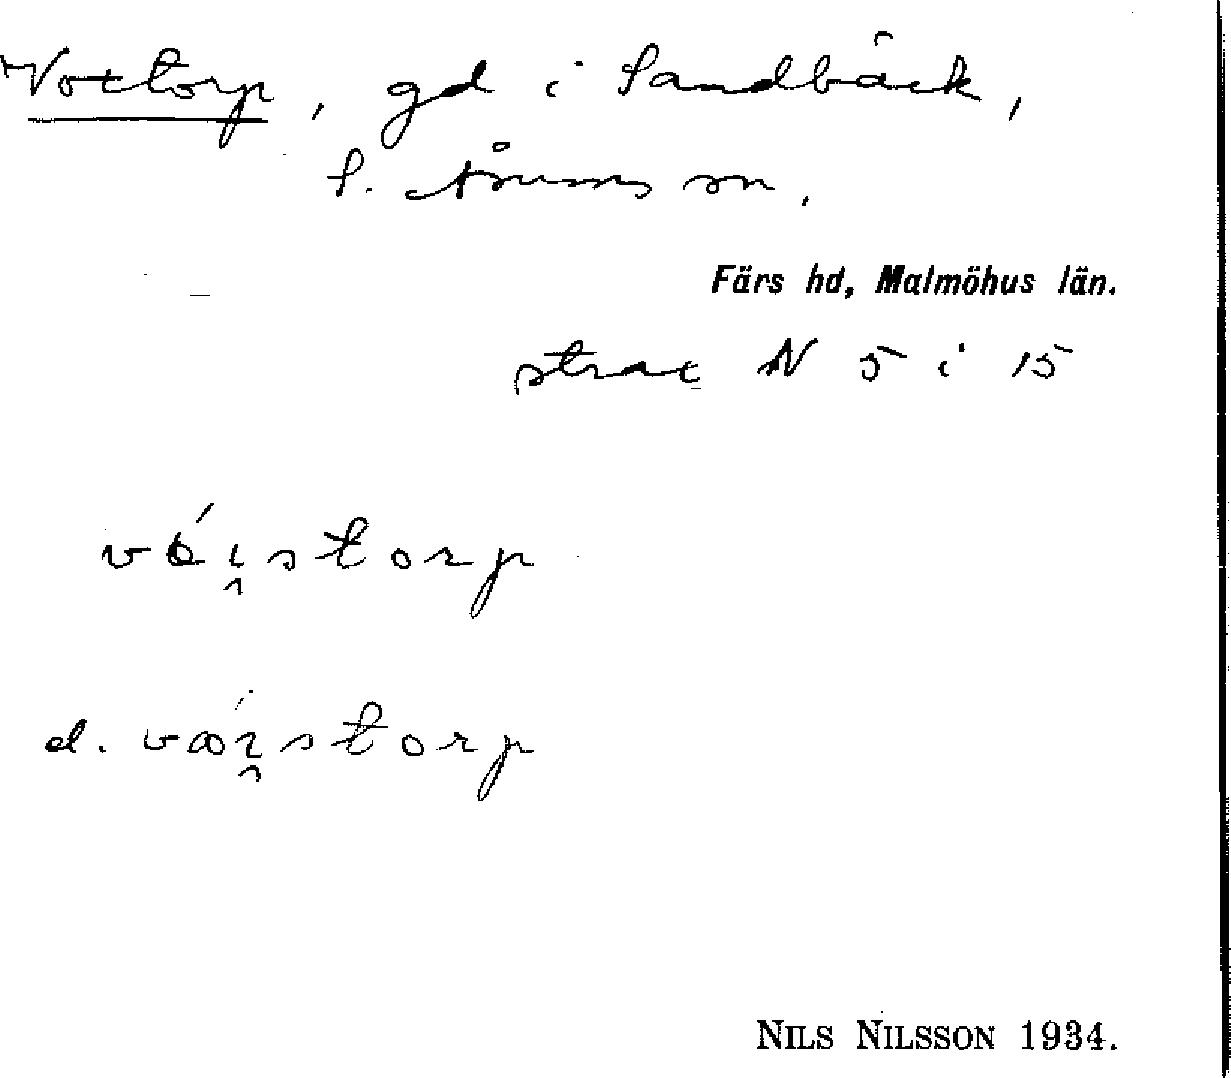 Voctorp, gd i Sandbäck,
S. Åsums sn.
Färs hd, Malmöhus län.
strax N 5 i 15
d.
NILS NILSSON 1934.